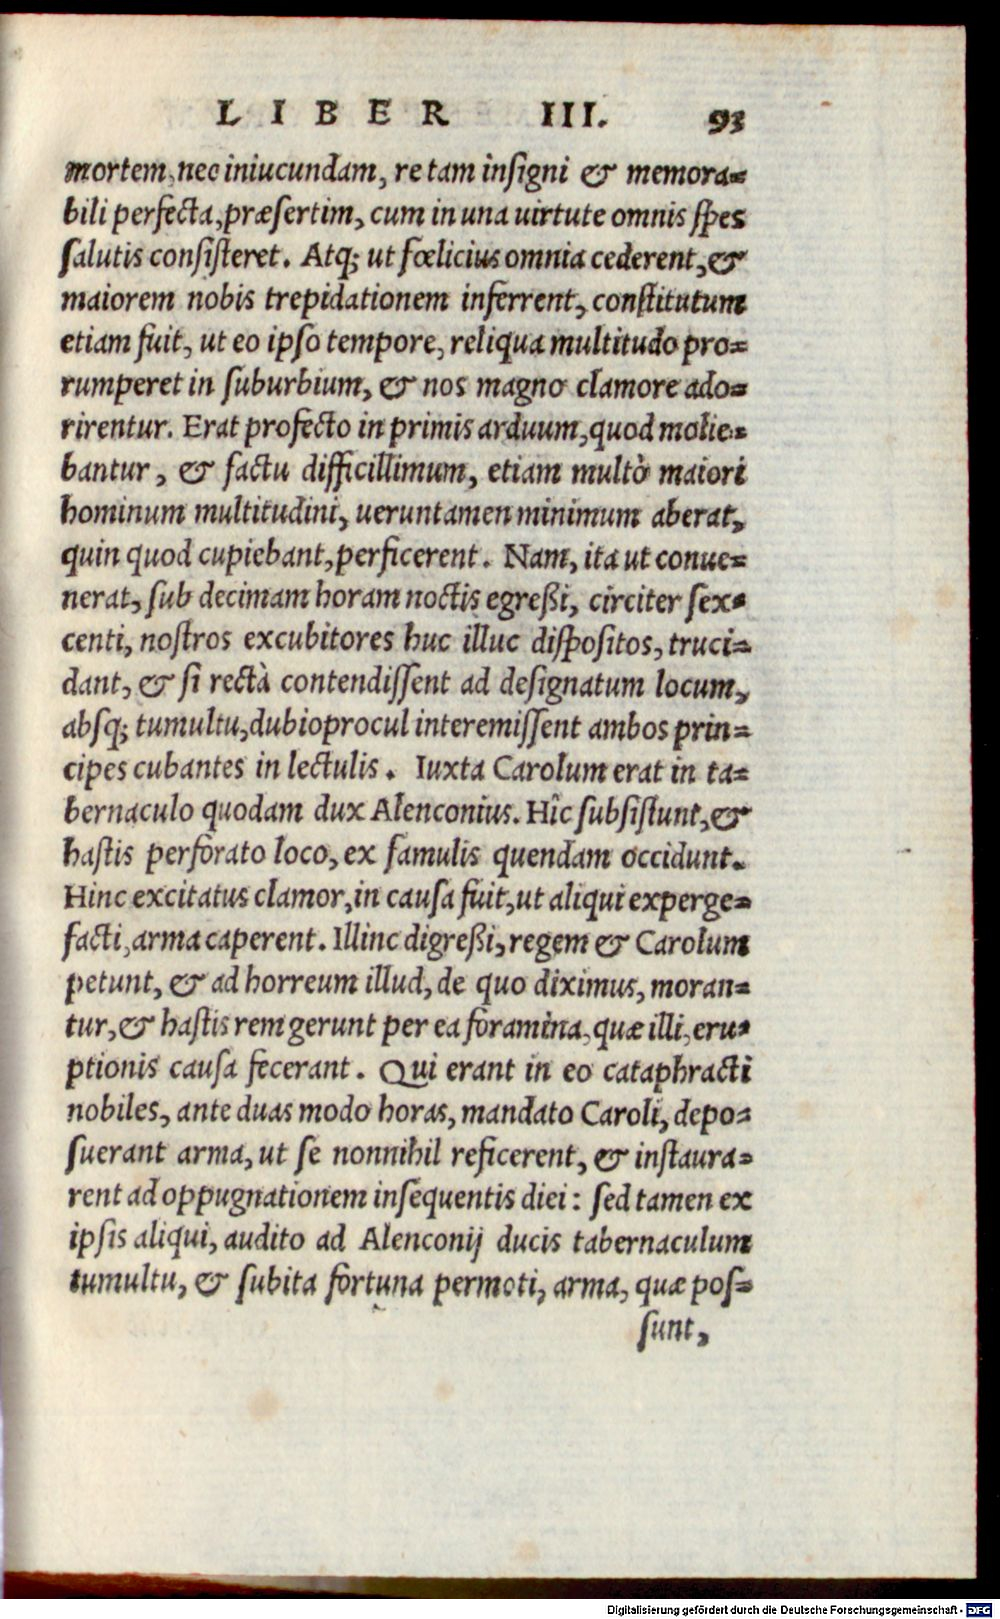 LIBER III. 93
mortem, nec iniucundam, re tam insigni & memora-
bili perfecta, præsertim, cum in una uirtute omnis spes
salutis consisteret. Atq; ut fœlicius omnia cederent, &
maiorem nobis trepidationem inferrent, constitutum
etiam fuit, ut eo ipso tempore, reliqua multitudo pro-
rumperet in suburbium, & nos magno clamore ado-
rirentur. Erat profecto in primis arduum, quod molie-
bantur, & factu difficillimum, etiam multò maiori
hominum multitudini, ueruntamen minimum aberat,
quin quod cupiebant, perficerent. Nam, ita ut conue-
nerat, sub decimam horam noctis egreßi, circiter sex-
centi, nostros excubitores huc illuc dispositos, truci-
dant, & si rectà contendissent ad designatum locum,
absq; tumultu, dubioprocul interemissent ambos prin-
cipes cubantes in lectulis. Iuxta Carolum erat in ta-
bernaculo quodam dux Alenconius. Hîc subsistunt, &
hastis perforato loco, ex famulis quendam occidunt.
Hinc excitatus clamor, in causa fuit, ut aliqui experge-
facti, arma caperent. Illinc digreßi, regem & Carolum
petunt, & ad horreum illud, de quo diximus, moran-
tur, & hastis rem gerunt per ea foramina, quæ illi, eru-
ptionis causa fecerant. Qui erant in eo cataphracti
nobiles, ante duas modo horas, mandato Caroli, depo-
suerant arma, ut se nonnihil reficerent, & instaura-
rent ad oppugnationem insequentis diei: sed tamen ex
ipsis aliqui, audito ad Alenconij ducis tabernaculum
tumultu, & subita fortuna permoti, arma, quæ pos-
sunt,
Digitalisierung gefördert durch die Deutsche Forschungsgemeinschaft - DFG